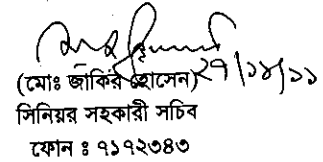 (মোঃ জাকির হোসেন)
সিনিয়র সহকারী সচিব
ফোন ঃ ৭১৭২৩৪৩